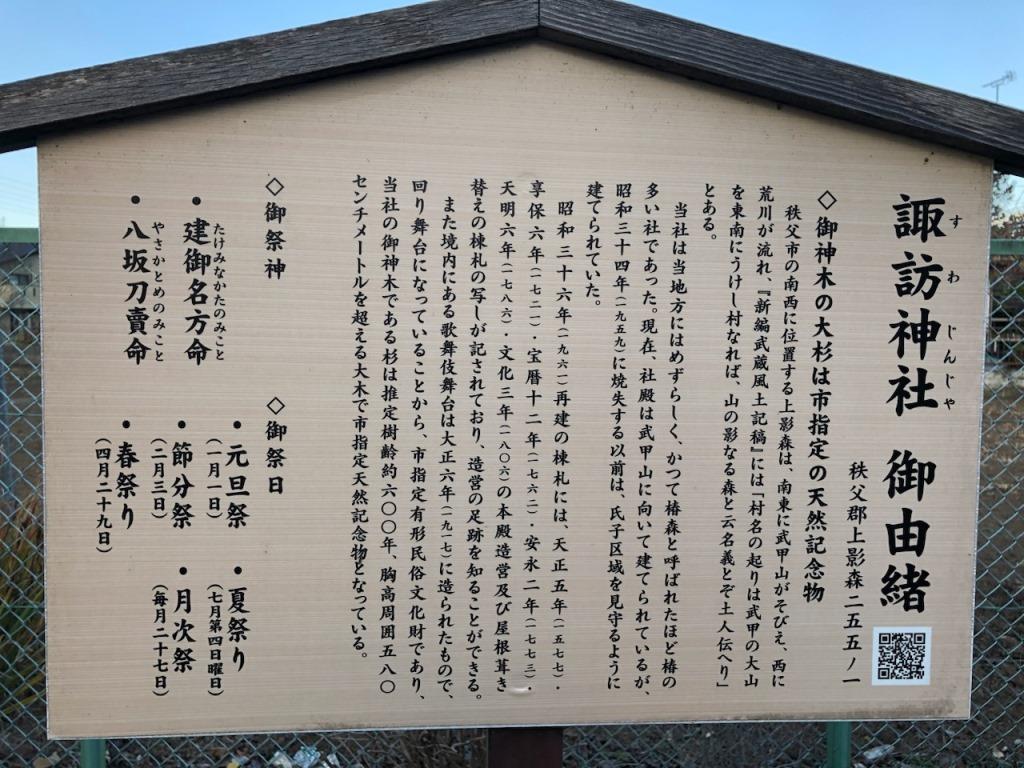 諏訪神社 御由緒
すわじんじゃ
秩父郡上影森二五五ノ一
◇御神木の大杉は市指定の天然記念物
秩父市の南西に位置する上影森は、南東に武甲山がそびえ、西に
荒川が流れ、『新編武蔵風土記稿』には「村名の起りは武甲の大山
を東南にうけし村なれば、山の影なる森と云名義とぞ土人伝へり」
とある。
当社は当地方にはめずらしく、かつて椿森と呼ばれたほど椿の
多い社であった。現在、社殿は武甲山に向いて建てられているが、
昭和三十四年(一九五九)に焼失する以前は、氏子区域を見守るように
建てられていた。
昭和三十六年(一九六一)再建の棟札には、天正五年(一五七七)・
享保六年(一七二一)・宝暦十二年(一七六二)・安永二年(一七七三)・
天明六年(一七八六)・文化三年(一八〇六)の本殿造営及び屋根葺き
替えの棟札の写しが記されており、造営の足跡を知ることができる。
また境内にある歌舞伎舞台は大正六年(一九一七)に造られたもので、
回り舞台になっていることから、市指定有形民俗文化財であり、
当社の御神木である杉は推定樹齢約六〇〇年、胸高周囲五八〇
センチメートルを超える大木で市指定天然記念物となっている。
◇御祭神
・建御名方命
たけみなかたのみこと
・八坂刀賣命
やさかとめのみこと
◇御祭日
・元旦祭
(一月一日)
・節分祭
(二月三日)
・春祭り
(四月二十九日)
・夏祭り
(七月第四日曜日)
・月次祭
(毎月二十七日)